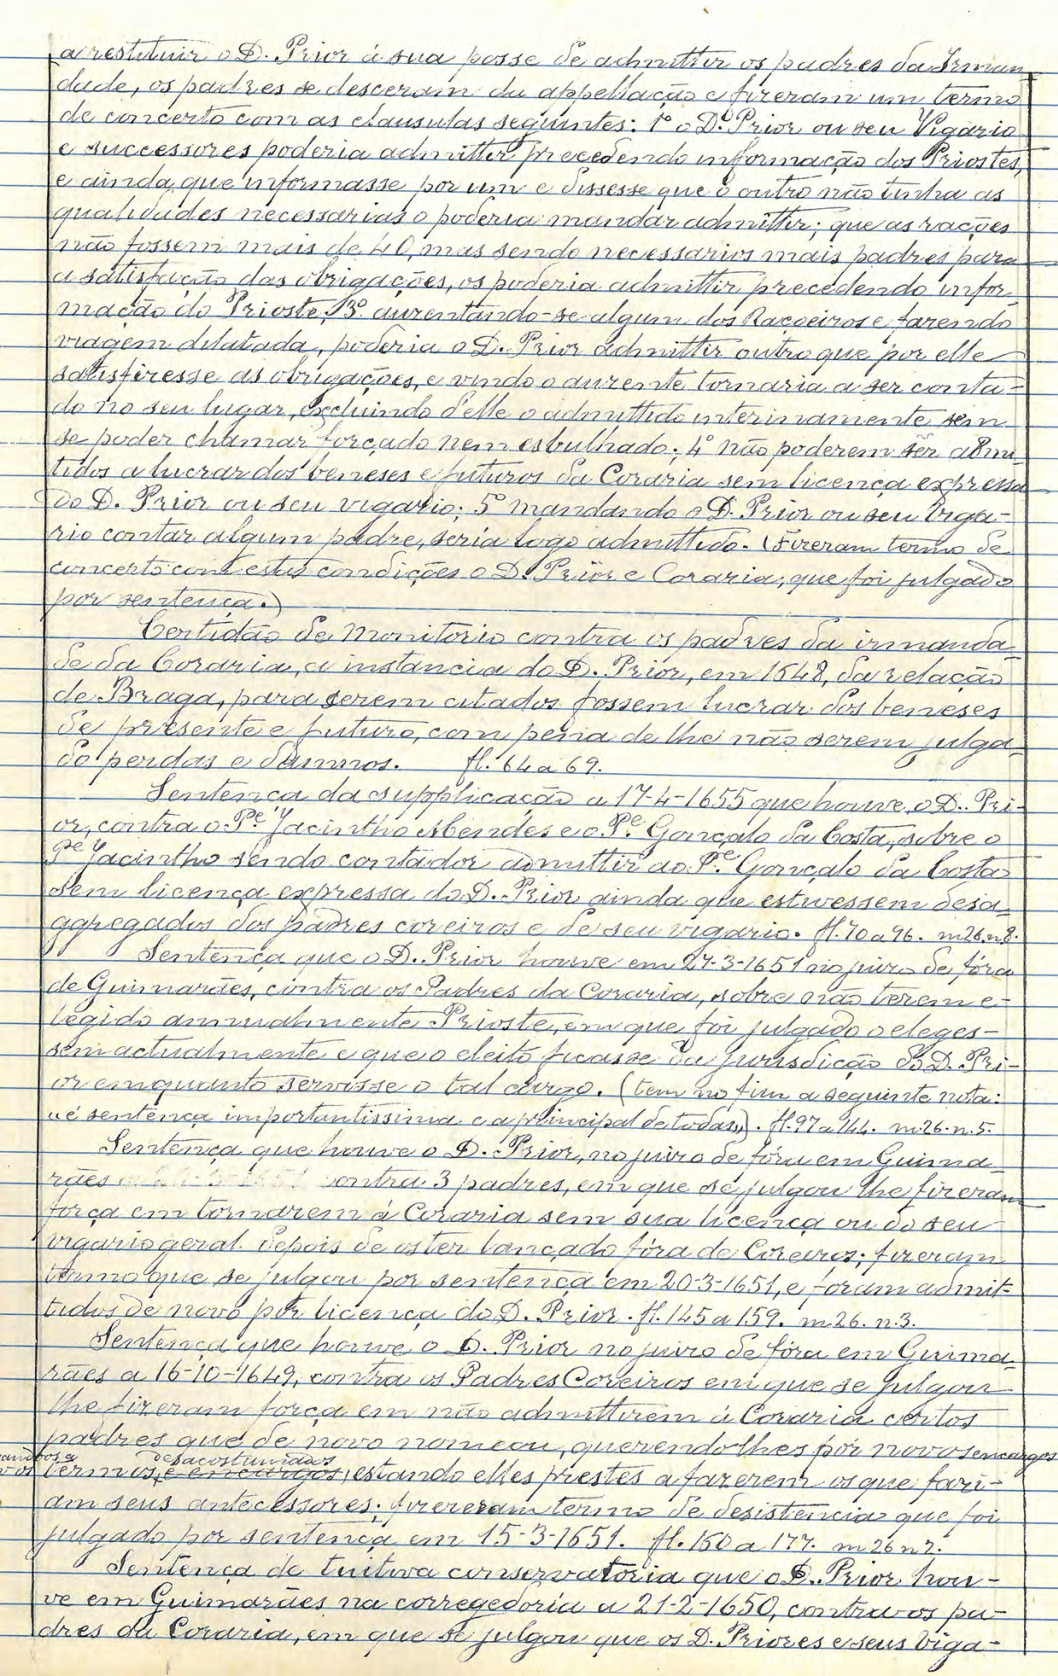 a restituir o D. Prior á sua posse de admittir os padres da Irman-
dade, os padres se desceram da appellação e fizeram um termo
de concerto com as clausulas seguintes: 1º o D. Prior ou seu Vigario
e successores poderia admittir precedendo informação dos Priostes,
e ainda que informasse por um e dissesse que o outro não tinha as
qualidades necessarias o poderia mandar admittir; que as rações
não fossem mais de 40, mas sendo necessarios mais padres para
a satisfação das obrigações, os poderia admittir precedendo infor-
mação do Prioste, 3º auzentando-se algum dos Racoeiros e fazendo
viagem dilatada, poderia o D. Prior admittir outro que por elle
satisfizesse as obrigações, e vindo o auzente tornaria a ser conta-
do no seu lugar, excluindo d'elle o admittido interinamente sem
se poder chamar forçado nem esbulhado; 4º não poderem ser admi-
tidos a lucrar dos beneses e futuros da Coraria sem licença expressa
do D. Prior ou seu vigario; 5º mandando o D. Prior ou seu Viga-
rio contar algum padre, seria logo admittido. (Fizeram termo de
concerto com estas condições o D. Prior e Coraria, que foi julgado
por sentença.)
Certidão de Monitorio contra os padres da irmanda-
de da Coraria, a instancia do D. Prior, em 1648, da relação
de Braga, para serem citados fossem lucrar dos beneses
de presente e futuro, com pena de lhe não serem julga-
do perdas e damnos. fl. 64 a 69.
Sentença da supplicação a 17-4-1655 que houve o D. Pri-
or, contra o Pe Jacintho Mendes e o Pe Gonçalo da Costa, sobre o
Pe Jacintho sendo contador admittir ao Pe Gonçalo da Costa
sem licença expressa do D. Prior ainda que estivessem desa-
ggregados dos padres coreiros e de seu vigario. fl. 70 a 96. m 26. n 8.
Sentença que o D. Prior houve em 27-3-1651 no juizo de fóra
de Guimarães, contra os Padres da Coraria, sobre não terem e-
legido annualmente Prioste, em que foi julgado o eleges-
sem actualmente e que o eleito ficasse da jurisdicção do D. Pri-
or emquanto servisse o tal cargo. (tem no fim a seguinte nota:
"é sentença importantissima e a principal de todas"). fl. 97 a 144. m. 26. n. 5.
Sentença que houve o D. Prior, no juizo de fóra em Guima-
rães contra 3 padres, em que se julgou lhe fizeram
força em tornarem á Coraria sem sua licença ou do seu
vigario geral depois de os ter lançado fóra de Coreiros; fizeram
termo que se julgou por sentença em 20-3-1651, e foram admit-
tidos de novo por licença do D. Prior. fl. 145 a 159. m 26. n. 3.
Sentença que houve o D. Prior no juizo de fóra em Guima-
rães a 16-10-1649, contra os Padres Coreiros em que se julgou
lhe fizeram força em não admittirem á Coraria certos
padres que de novo nomeou, querendo lhes pôr novos encargos
desacostumados
termos, e encargos, estando elles prestes a fazerem os que fazi-
am seus antecessores; fizereram termo de desistencia que foi
julgado por sentença em 15-3-1651. fl. 160 a 177. m 26 n 2.
Sentença de tuitiva conservatoria que o D. Prior hou-
ve em Guimarães na corregedoria a 21-2-1650, contra os pa-
dres da Coraria, em que se julgou que os D. Priores e seus Viga-